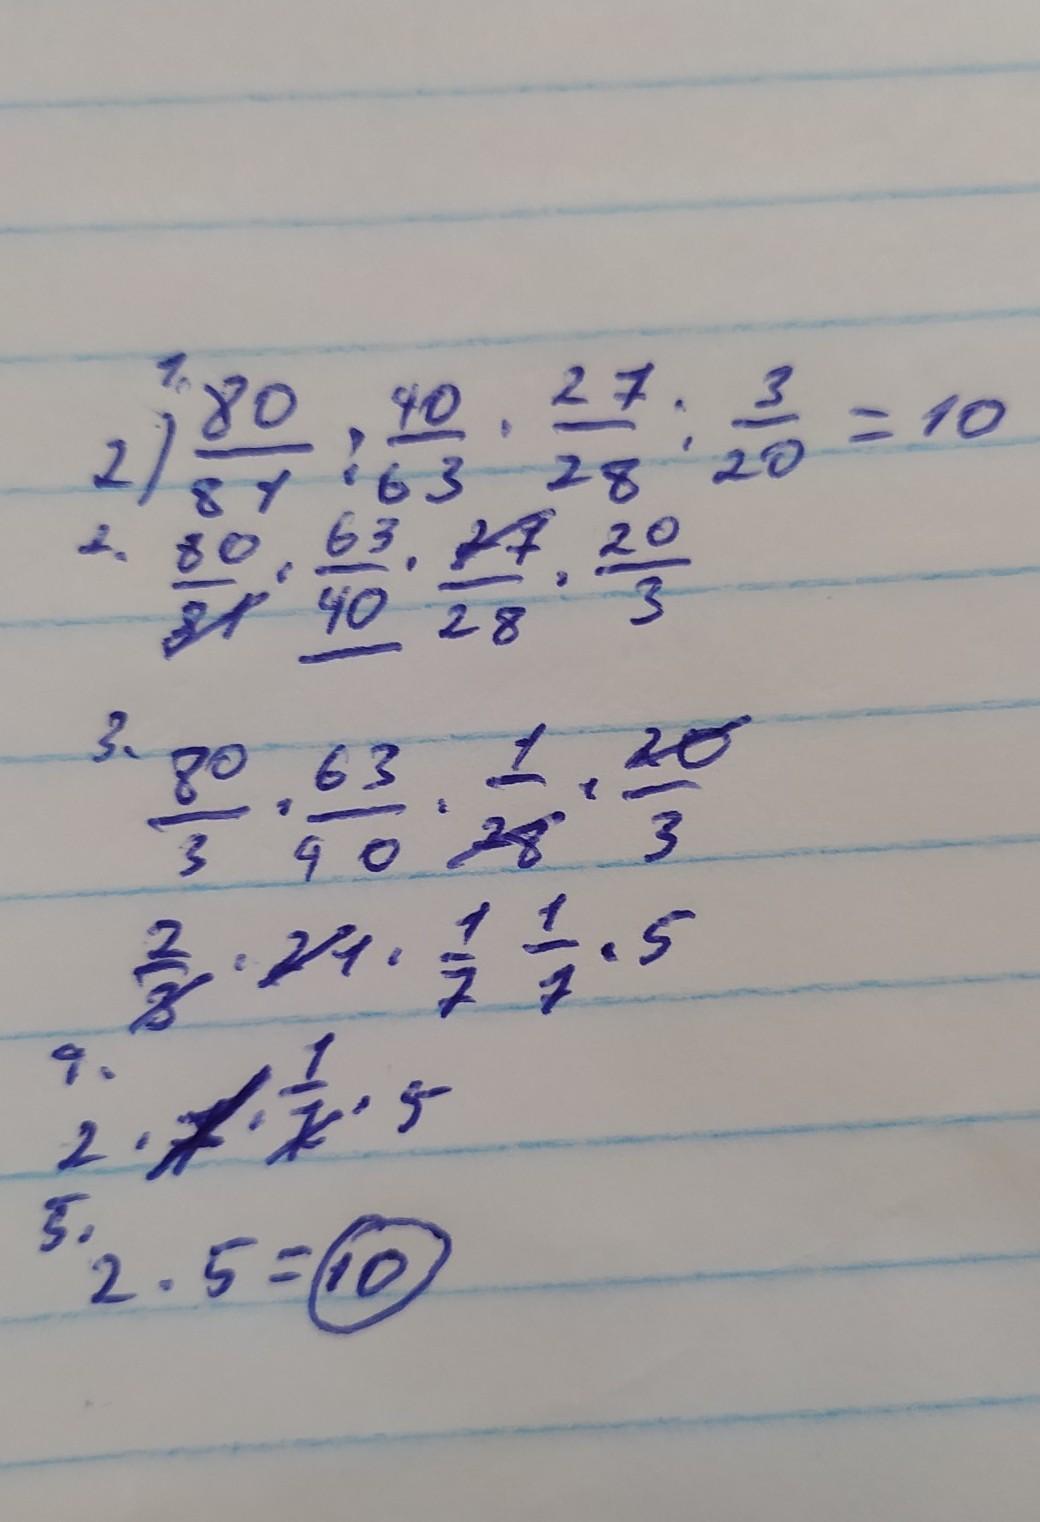 1.
2) 80/81 : 40/63 · 27/28 : 3/20 = 10
2. 80/81 · 63/40 · 27/28 · 20/3
3. 80/3 · 63/40 · 1/28 · 20/3
2/3 · 21 · 1/7 1/7 · 5
4.
2 · 7 · 1/7 · 5
5.
2 · 5 = 10